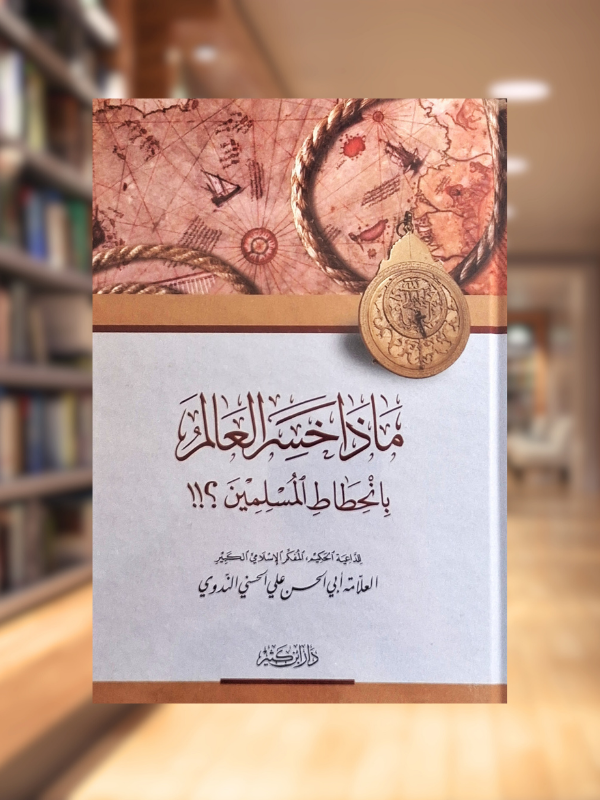 مَاذَا خَسِرَ العَالَمُ
بِانْحِطَاطِ المُسْلِمِينَ ؟!!
للدّاعية الحكيم، المفكر الإسلامي الكبير
العلّامة أبي الحسن علي الحسني النّدوي
دار ابن كثير